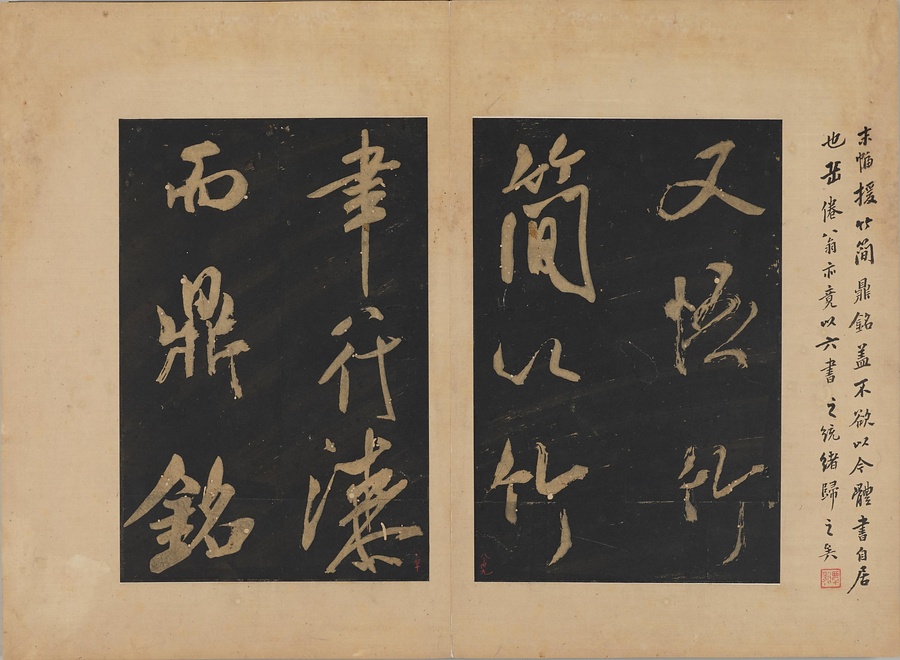 末幅援竹簡鼎銘盖不欲以今體書自居
也岳倦翁亦竟以六書之統緒歸之矣
又悟竹
簡以竹
聿行漆
而鼎銘